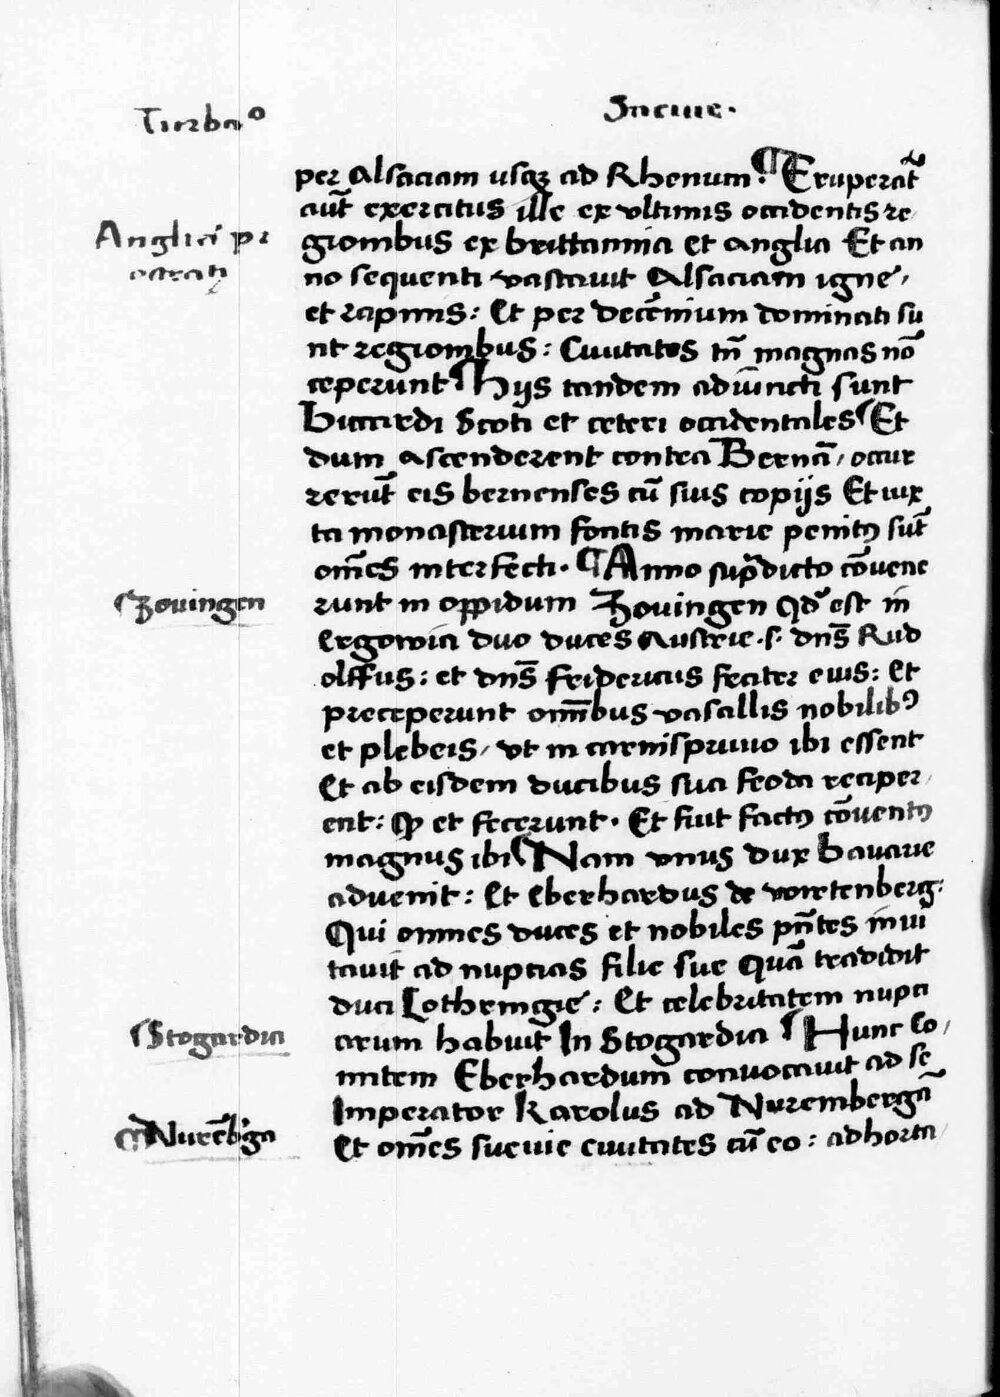 Turbaᵒ
Saciue.
per Alsaciam usqꝫ ad Rhenum. ¶ Eruperāt
aūt exercitus ille ex vltimis occidentis re
Anglici pr
ostrati
gionibus ex brittannia et anglia Et an
no sequenti vastauit Alsaciam igne,
et rapinis: Et per decēnium dominati su
nt regionibus: Ciuitates tn̄ magnas nō
ceperunt ¶ Hijs tandem adiūncti sunt
Biccardi Scoti et ceteri occidentales ¶ Et
dum ascenderent contra Bernā, occur
rerūt eis bernenses cū suis copijs Et iux
ta monasterium fontis marie penitꝰ sūt
om̄es interfecti. ¶ Anno sup̄dicto cōuene
¶ Zouingen
runt in oppidum Zouingen qd̄ est in
Ergowia duo duces Austrie .s. dn̄s Rud
olffus: et dn̄s fridericus frater eius: Et
preceperunt omībus vasallis nobilibꝰ
et plebeis, vt in carnispriuio ibi essent
Et ab eisdem ducibus sua feoda reciper,
ent: qꝫ et fecerunt. Et fuit factꝰ cōuentꝰ
magnus ibi ¶ Nam vnus dux bauarie
aduenit: Et Eberhardus de wirtenberg:
Qui omnes duces et nobiles pn̄tes inui
tauit ad nuptias filie sue Quā tradidit
duci Lothringie: Et celebritatem nupci
¶ Stogardia
arum habuit In Stogardia ¶ Hunc Co,
mitem Eberhardum conuocauit ad se
Imperator Karolus ad Nurembergā
¶ Nurēb'ga
Et om̄es sueuie ciuitates cū eo: adhorta,